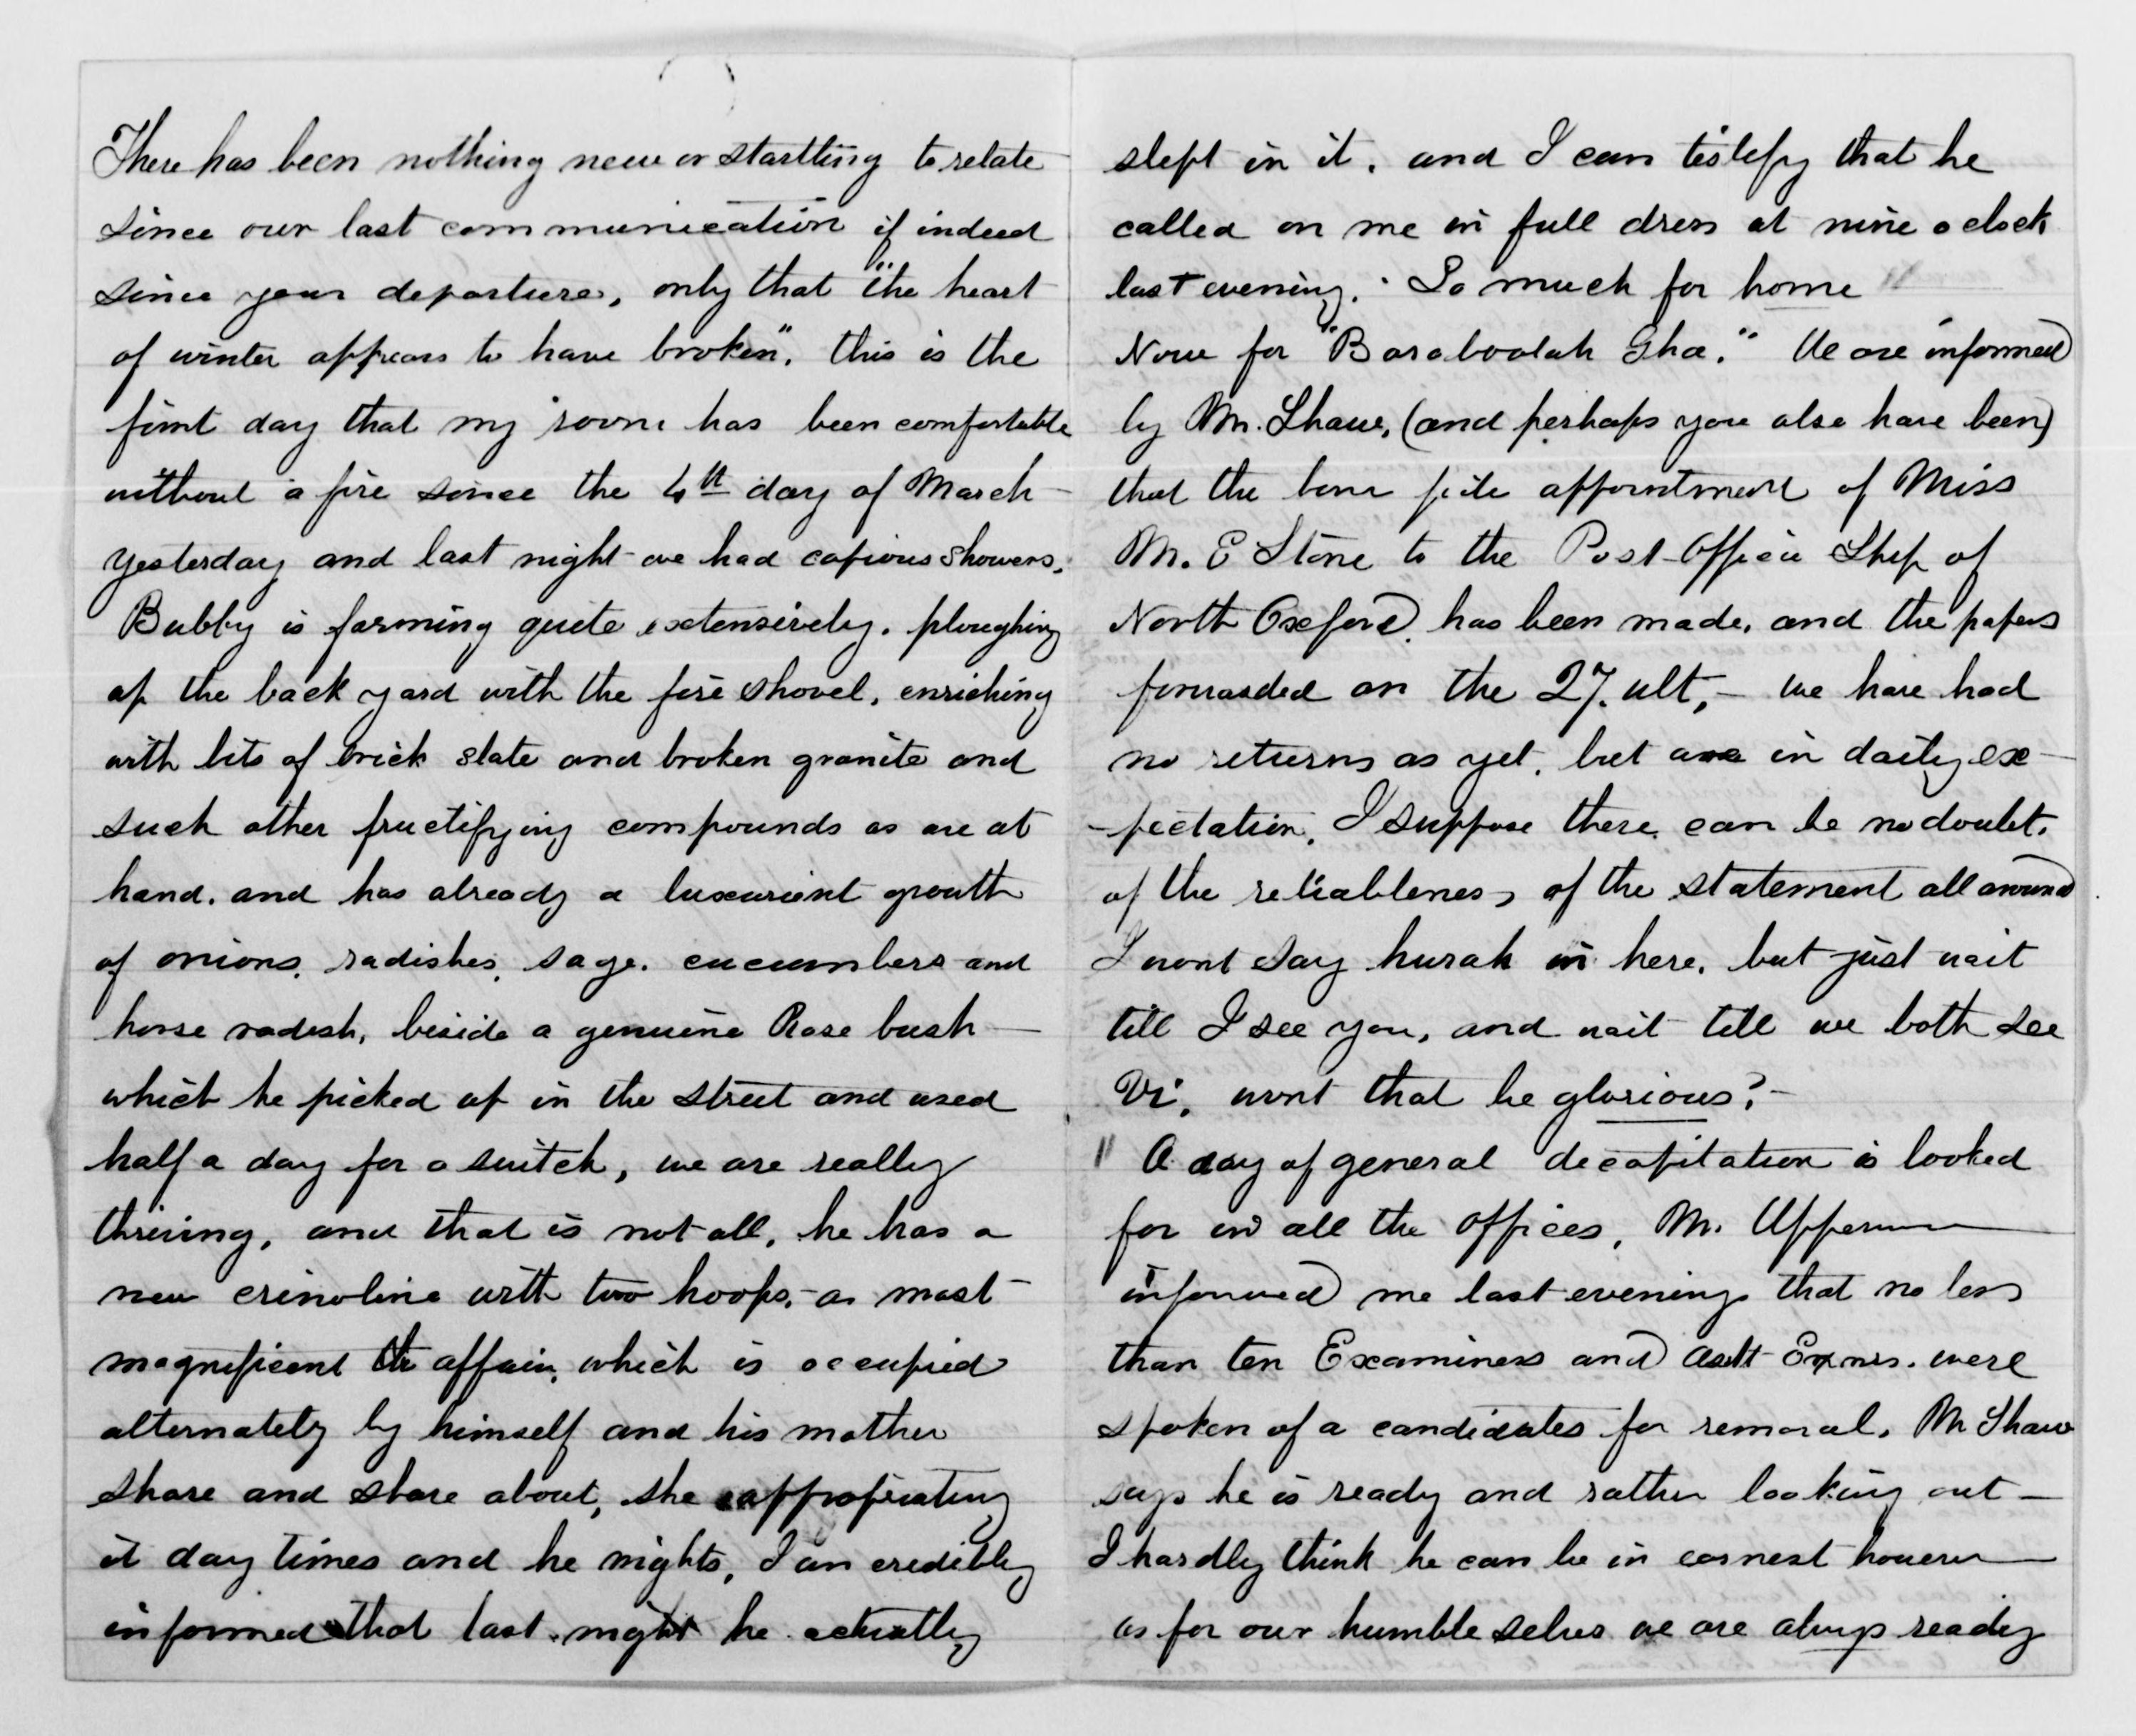 There has been nothing new or startling to relate
since our last communication if indeed
since your departure, only that "the heart
of winter appears to have broken". this is the
first day that my room has been comfortable
without a fire since the 4th day of March
yesterday and last night we had copious showers.
Bubby is farming quite extensively. ploughing
up the back yard with the fire shovel, enriching
with bits of brick slate and broken granite and
such other fructifying compounds as are at
hand. and has already a luxurient growth
of onions, radishes, sage. cucumbers and
horse radish, beside a genuine Rose bush
which he picked up in the street and used
half a day for a switch, we are really
thriving, and that is not all, he has a
new crinoline with two hoops, a most
magnificent affair, which is occupied
alternately by himself and his mother
share and share about, she appropriating
it day times and he nights, I am credibly
informed that last night he actually
slept in it. and I can testefy that he
called on me in full dress at nine o clock
last evening. So much for home
Now for "Baraboolah Gha." We are informed
by Mr. Shaw, (and perhaps you also have been)
that the bona fide appointment of Miss
M. E Stone to the Post-Office Ship of
North Oxford has been made, and the papers
forwarded on the 27. ult, - we have had
no returns as yet, but are in daily ex-
-pectation, I suppose there can be no doubt.
of the reliableness of the statement all around
I wont say hurah in here, but just wait
till I see you, and wait till we both see
Vi, wont that be glorious? -
" A day of general decapitation is looked
for in all the offices, Mr. Upperman
informed me last evening that no less
than ten Examiners and Asst Exmrs. were
spoken of a candidates for removal. Mr Shaw
says he is ready and rather looking out -
I hardly think he can be in earnest however
as for our humble selves we are always ready